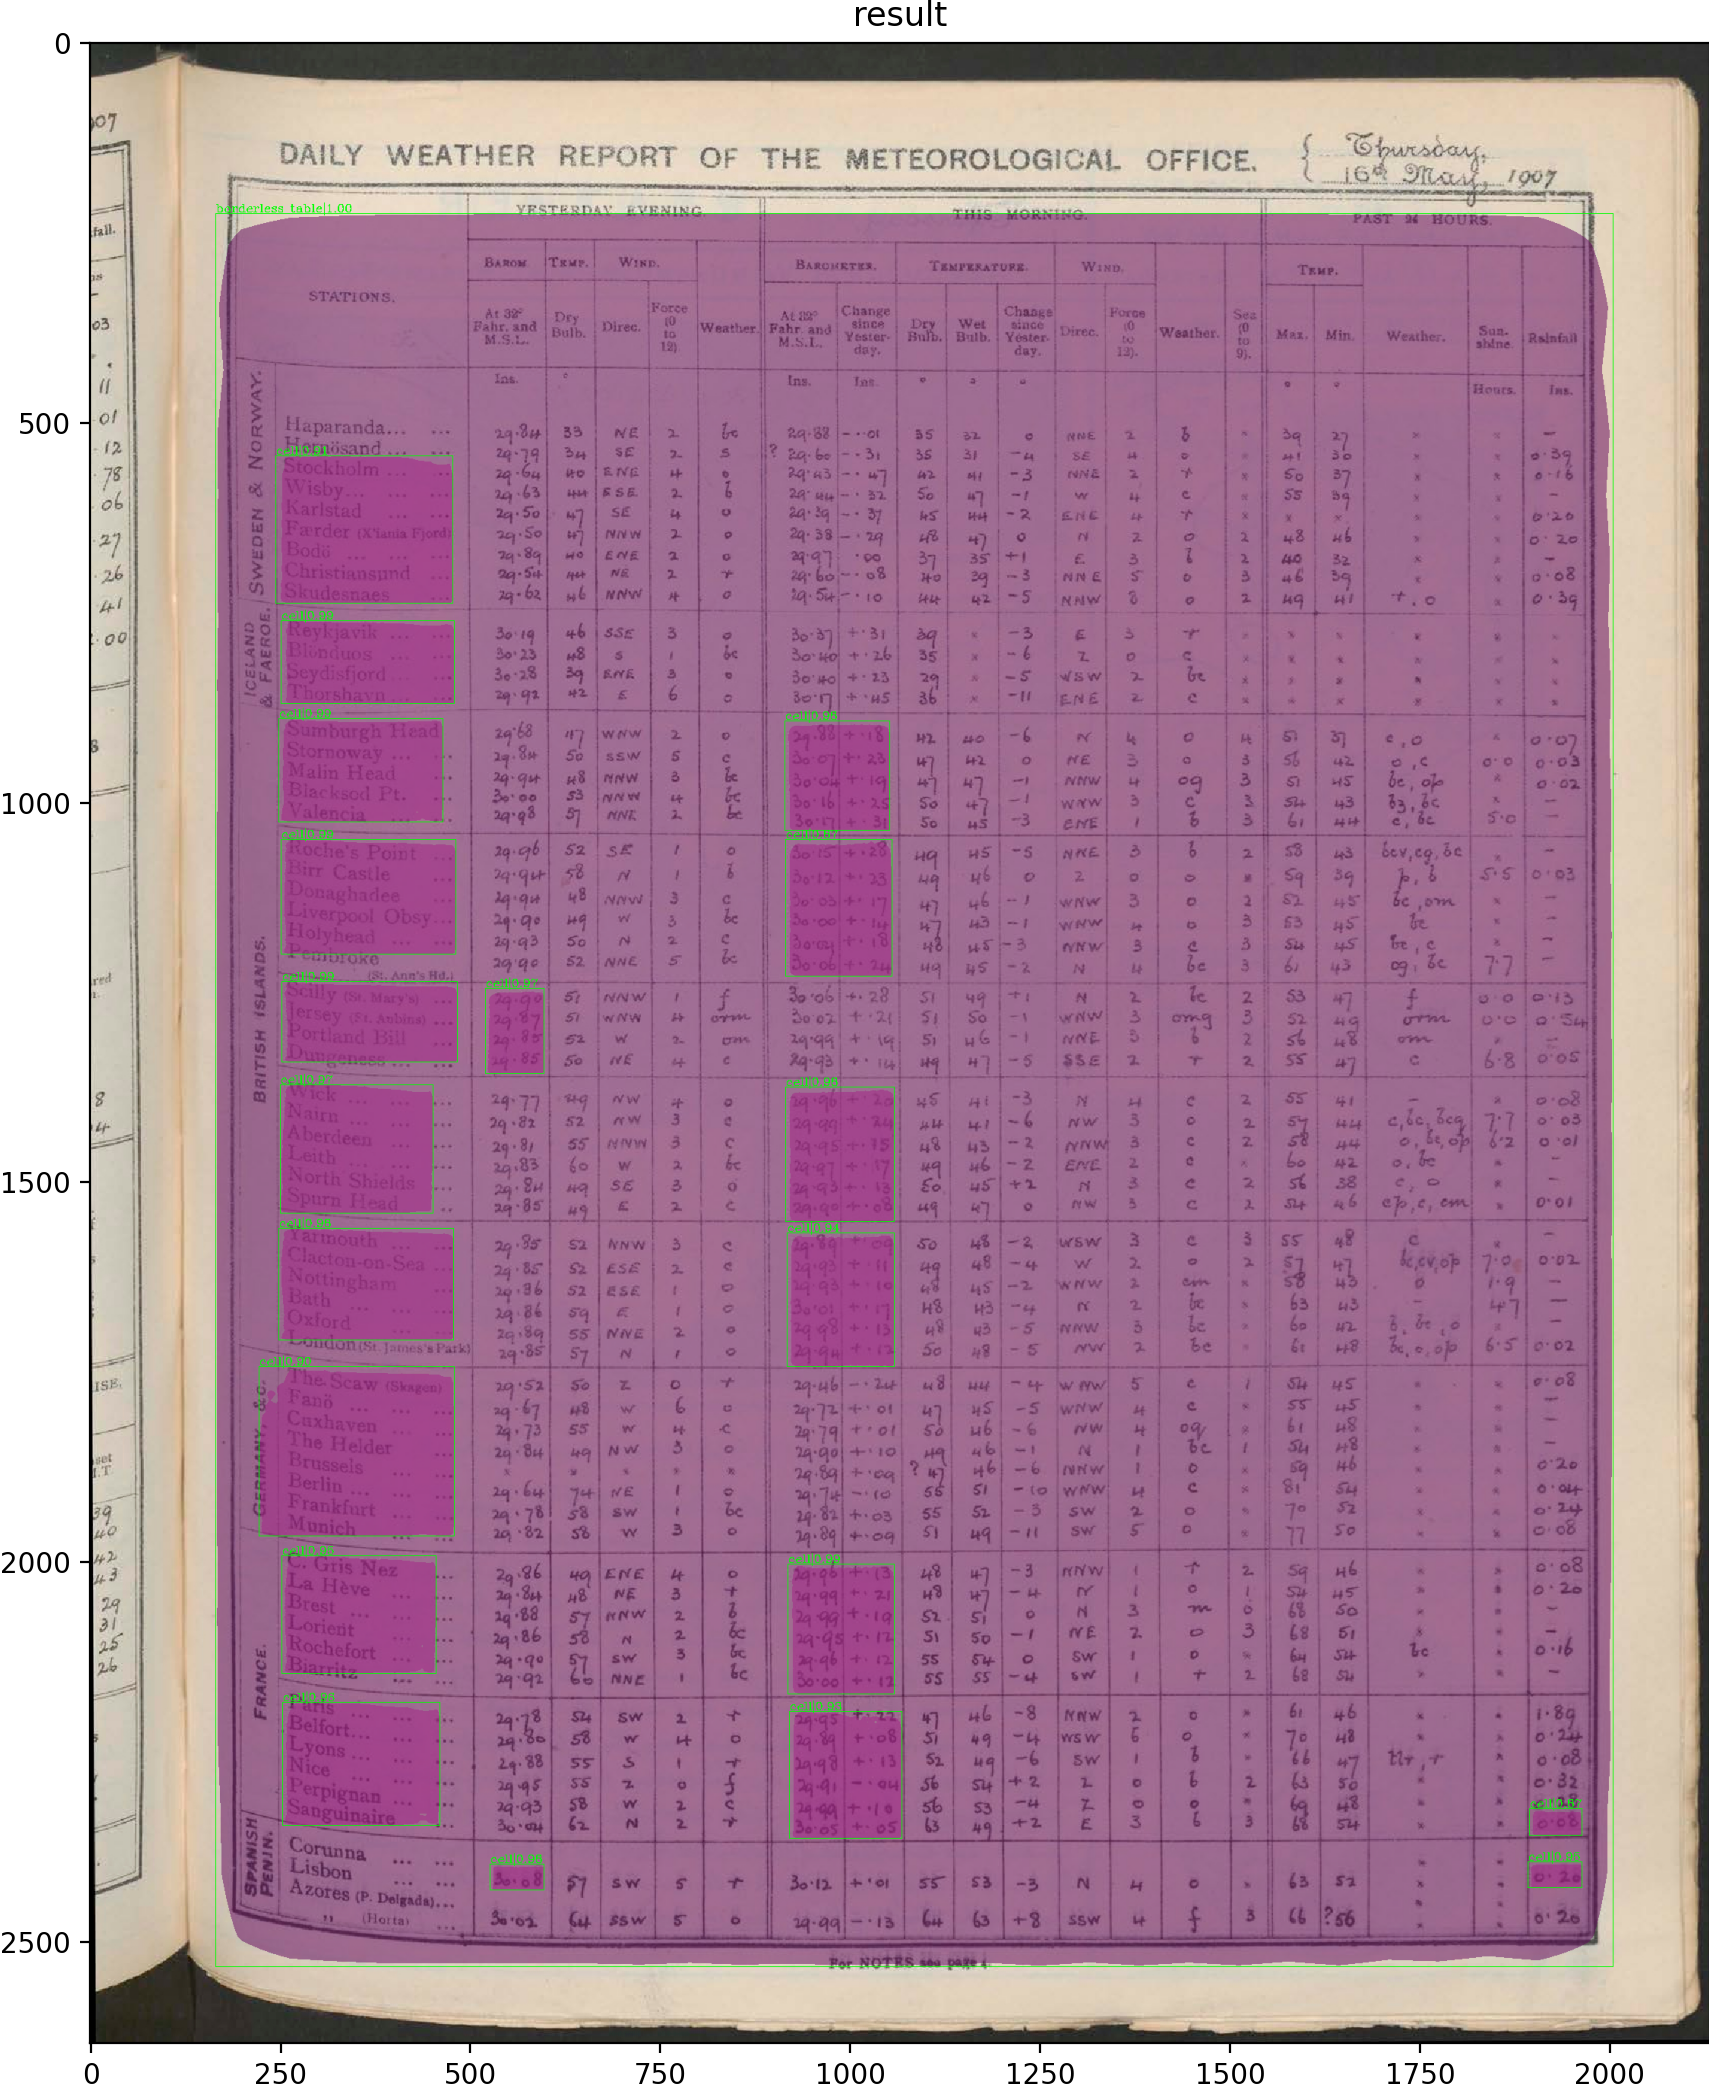 result
DAILY WEATHER REPORT OF THE METEOROLOGICAL OFFICE.
Thursday,
16th May, 1907
borderless table|1.00
YESTERDAY EVENING. THIS MORNING. PAST 24 HOURS.
BAROM. TEMP. WIND. BAROMETER. TEMPERATURE. WIND. TEMP.
STATIONS.
At 32° Fahr. and M.S.L. Dry Bulb. Direc. Force (0 to 12). Weather. At 32° Fahr. and M.S.L. Change since Yesterday. Dry Bulb. Wet Bulb. Change since Yesterday. Direc. Force (0 to 12). Weather. Sea (0 to 9). Max. Min. Weather. Sunshine. Rainfall
Ins. ° Ins. Ins. ° ° ° ° ° Hours. Ins.
SWEDEN & NORWAY.
Haparanda... ... 29.84 33 NE 2 bc 29.88 -.01 35 32 0 NNE 2 b × 39 27 × × -
Hernösand ... ... 29.79 34 SE 2 s ? 29.60 -.31 35 31 -4 SE 4 o × 41 30 × × 0.39
Stockholm ... ... 29.64 40 ENE 4 o 29.43 -.47 42 41 -3 NNE 2 r × 50 37 × × 0.16
Wisby... ... ... 29.63 44 ESE 2 b 29.44 -.32 50 47 -1 W 4 c × 55 39 × × -
Karlstad ... ... 29.50 47 SE 4 o 29.39 -.37 45 44 -2 ENE 4 r × × × × × 0.20
Færder (X'iania Fjord) 29.50 47 NNW 2 o 29.38 -.29 48 47 0 N 2 o 2 48 46 × × 0.20
Bodö ... ... ... 29.89 40 ENE 2 o 29.97 .00 37 35 +1 E 3 b 2 40 32 × × -
Christiansund ... 29.54 44 NE 2 r 29.60 -.08 40 39 -3 NNE 5 o 3 46 39 × × 0.08
Skudesnaes ... 29.62 46 NNW 4 o 29.54 -.10 44 42 -5 NNW 8 o 2 49 41 r, o × 0.39
ICELAND & FAEROE.
Reykjavik ... ... 30.19 46 SSE 3 o 30.37 +.31 39 × -3 E 3 r × × × × × ×
Blönduos ... ... 30.23 48 S 1 bc 30.40 +.26 35 × -6 Z 0 c × × × × × ×
Seydisfjord ... 30.28 39 ENE 3 o 30.40 +.23 29 × -5 WSW 2 bc × × × × × ×
Thorshavn ... ... 29.92 42 E 6 o 30.17 +.45 36 × -11 ENE 2 c × × × × × ×
BRITISH ISLANDS.
Sumburgh Head 29.68 47 WNW 2 o 29.88 +.18 42 40 -6 N 4 o 4 51 37 c, o × 0.07
Stornoway ... ... 29.84 50 SSW 5 c 30.07 +.23 47 42 0 NE 3 o 3 56 42 o, c 0.0 0.03
Malin Head ... 29.94 48 NNW 3 bc 30.04 +.19 47 47 -1 NNW 4 og 3 51 45 bc, op × 0.02
Blacksod Pt. ... 30.00 53 NNW 4 bc 30.16 +.25 50 47 -1 WNW 3 c 3 54 43 b3, bc × -
Valencia ... ... 29.98 57 NNE 2 bc 30.17 +.31 50 45 -3 ENE 1 b 3 61 44 c, bc 5.0 -
Roche's Point ... 29.96 52 SE 1 o 30.15 +.28 49 45 -5 NNE 3 b 2 58 43 bcv, cg, bc × -
Birr Castle ... 29.94 58 N 1 b 30.12 +.23 49 46 0 Z 0 o × 59 39 p, b 5.5 0.03
Donaghadee ... 29.94 48 NNW 3 c 30.03 +.17 47 46 -1 WNW 3 o 2 52 45 bc, om × -
Liverpool Obsy... 29.90 49 W 3 bc 30.00 +.14 47 43 -1 WNW 4 o 3 53 45 bc × -
Holyhead ... ... 29.93 50 N 2 c 30.02 +.18 48 45 -3 NNW 3 c 3 54 45 bc, c × -
Pembroke (St. Ann's Hd.) 29.90 52 NNE 5 bc 30.06 +.24 49 45 -2 N 4 bc 3 61 43 og, bc 7.7 -
Scilly (St. Mary's) ... 29.90 51 NNW 1 f 30.06 +.28 51 49 +1 N 2 bc 2 53 47 f 0.0 0.13
Jersey (St. Aubins) ... 29.87 51 WNW 4 orm 30.02 +.21 51 50 -1 WNW 3 omg 3 52 49 orm 0.0 0.54
Portland Bill ... 29.85 52 W 2 om 29.99 +.19 51 46 -1 NNE 3 b 2 56 48 om × -
Dungeness ... ... 29.85 50 NE 4 c 29.93 +.14 49 47 -5 SSE 2 r 2 55 47 c 6.8 0.05
Wick ... ... ... 29.77 49 NW 4 o 29.96 +.20 45 41 -3 N 4 c 2 55 41 - × 0.08
Nairn ... ... ... 29.82 52 NW 3 c 29.99 +.24 44 41 -6 NW 3 o 2 57 44 c, bc, bcq 7.7 0.03
Aberdeen ... ... 29.81 55 NNW 3 c 29.95 +.15 48 43 -2 NNW 3 c 2 58 44 o, bc, op 6.2 0.01
Leith ... ... ... 29.83 60 W 2 bc 29.97 +.17 49 46 -2 ENE 2 c × 60 42 o, bc × -
North Shields ... 29.84 49 SE 3 o 29.93 +.13 50 45 +2 N 3 c 2 56 38 c, o × -
Spurn Head .. 29.85 49 E 2 c 29.90 +.08 49 47 0 NW 3 c 2 54 46 cp, c, cm × 0.01
Yarmouth ... ... 29.85 52 NNW 3 c 29.89 +.09 50 48 -2 WSW 3 c 3 55 48 c × -
Clacton-on-Sea ... 29.85 52 ESE 2 c 29.93 +.11 49 48 -4 W 2 o 2 57 47 bc, cv, op 7.0 0.02
Nottingham ... 29.86 52 ESE 1 o 29.93 +.10 48 45 -2 WNW 2 cm × 58 43 o 1.9 -
Bath ... ... ... 29.86 59 E 1 o 30.01 +.17 48 43 -4 N 2 bc × 63 43 - 4.7 -
Oxford ... ... 29.89 55 NNE 2 o 29.98 +.13 48 43 -5 NNW 3 bc × 60 42 b, bc, o × -
London (St. James's Park) 29.85 57 N 1 o 29.94 +.12 50 48 -5 NW 2 bc × 61 48 bc, o, op 6.5 0.02
GERMANY, &c.
The Scaw (Skagen) 29.52 50 Z 0 r 29.46 -.24 48 44 -4 WNW 5 c 1 54 45 × × 0.08
Fanö ... ... ... 29.67 48 W 6 o 29.72 +.01 47 45 -5 WNW 4 c × 55 45 × × -
Cuxhaven ... ... 29.73 55 W 4 c 29.79 +.01 50 46 -6 NW 4 oq × 61 48 × × -
The Helder ... 29.84 49 NW 3 o 29.90 +.10 49 46 -1 N 1 bc 1 54 48 × × -
Brussels ... ... × × × × × 29.89 +.09 ? 47 46 -6 NNW 1 o × 59 46 × × 0.20
Berlin ... ... ... 29.64 74 NE 1 o 29.74 -.10 55 51 -10 WNW 4 c × 81 54 × × 0.04
Frankfurt ... ... 29.78 58 SW 1 bc 29.82 +.03 55 52 -3 SW 2 o × 70 52 × × 0.24
Munich ... ... 29.82 58 W 3 o 29.89 +.09 51 49 -11 SW 5 o × 77 50 × × 0.08
FRANCE.
C. Gris Nez ... 29.86 49 ENE 4 o 29.96 +.13 48 47 -3 NNW 1 r 2 59 46 × × 0.08
La Hève ... ... 29.84 48 NE 3 r 29.99 +.21 48 47 -4 N 1 o 1 54 45 × × 0.20
Brest ... ... ... 29.88 57 NNW 2 b 29.99 +.19 52 51 0 N 3 m 0 68 50 × × -
Lorient ... ... 29.86 58 N 2 bc 29.95 +.12 51 50 -1 NE 2 o 3 68 51 × × -
Rochefort ... ... 29.90 57 SW 3 bc 29.96 +.12 55 54 0 SW 1 o × 64 54 bc × 0.16
Biarritz ... ... 29.92 60 NNE 1 bc 30.00 +.12 55 55 -4 SW 1 r 2 68 54 × × -
Paris ... ... ... 29.78 54 SW 2 r 29.95 +.22 47 46 -8 NNW 2 o × 61 46 × × 1.89
Belfort... ... ... 29.80 58 W 4 o 29.89 +.08 51 49 -4 WSW 6 o × 70 48 × × 0.24
Lyons ... ... ... 29.88 55 S 1 r 29.98 +.13 52 49 -6 SW 1 b × 66 47 tlr, r × 0.08
Nice ... ... ... 29.95 55 Z 0 f 29.91 -.04 56 54 +2 Z 0 b 2 63 50 × × 0.32
Perpignan ... ... 29.93 58 W 2 c 29.99 +.10 56 53 -4 Z 0 o × 69 48 × ×
Sanguinaire ... 30.04 62 N 2 r 30.05 +.05 63 49 +2 E 3 b 3 68 54 × × 0.08
SPANISH PENIN.
Corunna ... ...
Lisbon ... ... 30.08 57 SW 5 r 30.12 +.01 55 53 -3 N 4 o × 63 52 × × 0.20
Azores (P. Delgada)...
" (Horta) ... 30.02 64 SSW 5 o 29.99 -.13 64 63 +8 SSW 4 f 3 66 ?56 × × 0.20
For NOTES see page 4.
0
500
1000
1500
2000
2500
0 250 500 750 1000 1250 1500 1750 2000